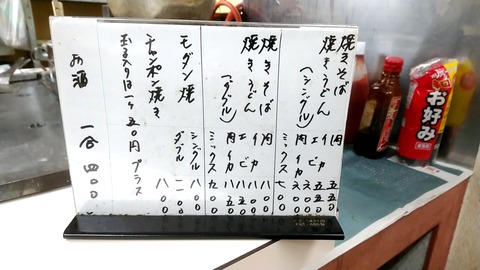 焼きそば
焼きうどん
(シングル)
肉 五五〇
イカ 五五〇
エビ 六〇〇
肉イカ 六〇〇
ミックス 七〇〇
焼きそば
焼きうどん
(ダブル)
肉 八〇〇
イカ 八〇〇
エビ 八五〇
肉イカ 八五〇
ミックス 九〇〇
モダン焼 シングル 八〇〇
ダブル
チャンポン焼き 八〇〇
玉子入りは一ヶ五〇円プラス
お酒 一合 四〇〇
お好み